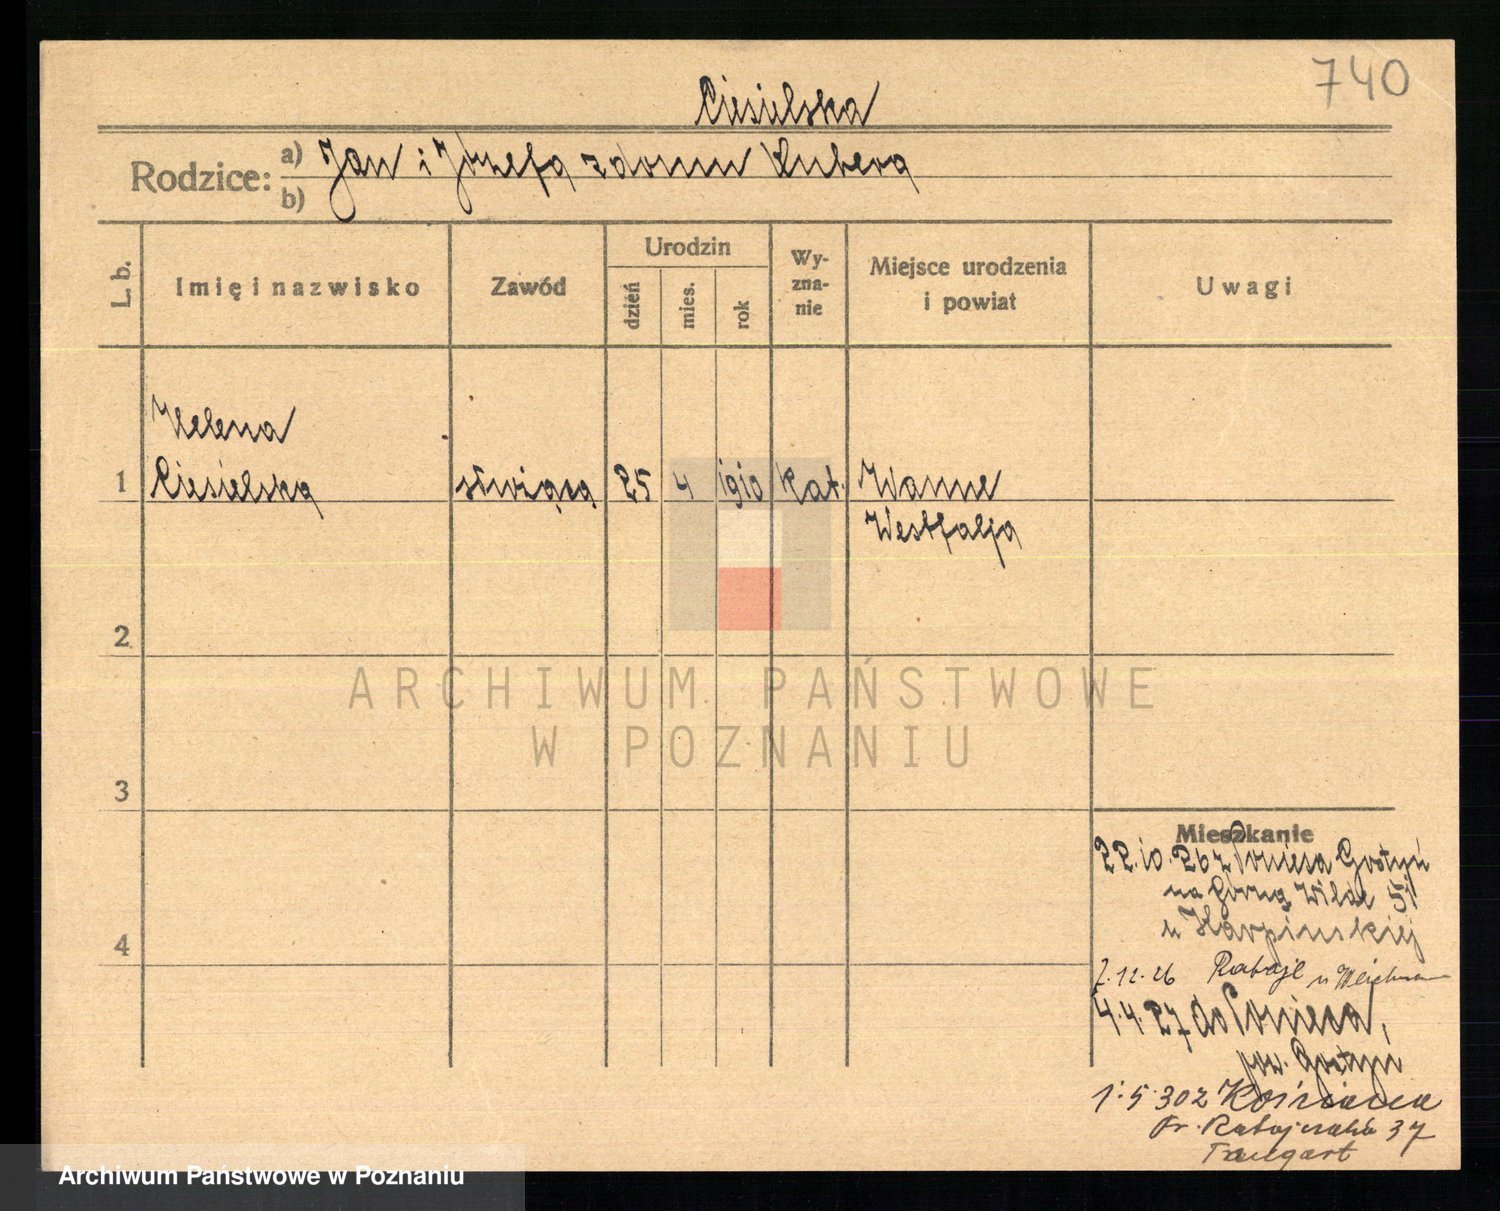 740
Ciesielska
Rodzice: a) Jan i Józefa z domu Kubera
b)
L. b. Imię i nazwisko Zawód Urodzin dzień mies. rok Wy-zna-nie Miejsce urodzenia i powiat Uwagi
Helena
1 Ciesielska służąca 25 4 1910 kat. Wanne
Westfalja
2
3
4
Mieszkanie
22.10.26 z Ponieca Gostyń
na Górną Wildę 51
u Karpińskiej
7.12.26 Rataje u
4.4.27 do Ponieca,
pow. Gostyń
1.5.30 z Kościana
Fr. Ratajczaka 37
ARCHIWUM PAŃSTWOWE
W POZNANIU
Archiwum Państwowe w Poznaniu